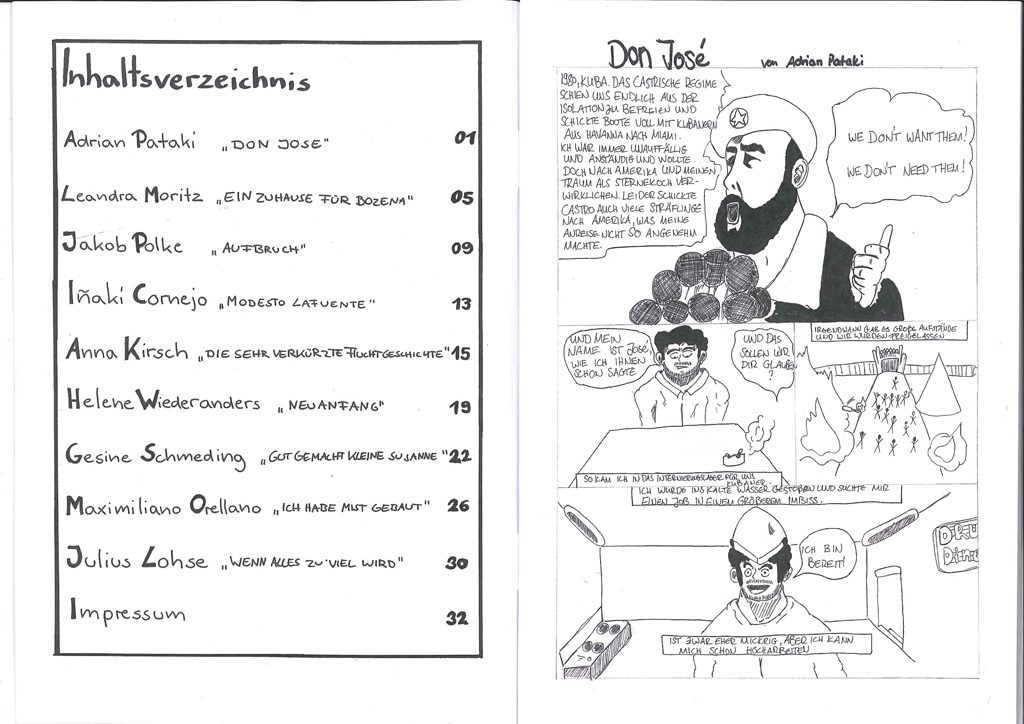 Inhaltsverzeichnis
Adrian Pataki „DON JOSE" 01
Leandra Moritz „EIN ZUHAUSE FÜR BOZENA" 05
Jakob Polke „AUFBRUCH" 09
Iñaki Cornejo „MODESTO LAFUENTE" 13
Anna Kirsch „DIE SEHR VERKÜRZTE FLUCHTGESCHICHTE" 15
Helene Wiederanders „NEUANFANG" 19
Gesine Schmeding „GUT GEMACHT KLEINE SUSANNE" 22
Maximiliano Orellano „ICH HABE MIST GEBAUT" 26
Julius Lohse „WENN ALLES ZU VIEL WIRD" 30
Impressum 32
Don José von Adrian Pataki
1980, KUBA. DAS CASTRISCHE REGIME
SCHIEN UNS ENDLICH AUS DER
ISOLATION ZU BEFREIEN UND
SCHICKTE BOOTE VOLL MIT KUBANERN
AUS HAVANNA NACH MIAMI.
ICH WAR IMMER UNAUFFÄLLIG
UND ANSTÄNDIG UND WOLLTE
DOCH NACH AMERIKA UND MEINEN
TRAUM ALS STERNEKOCH VER-
WIRKLICHEN. LEIDER SCHICKTE
CASTRO AUCH VIELE STRÄFLINGE
NACH AMERIKA, WAS MEINE
ANREISE NICHT SO ANGENEHM
MACHTE.
WE DON'T WANT THEM!
WE DON'T NEED THEM!
UND MEIN
NAME IST JOSE,
WIE ICH IHNEN
SCHON SAGTE
UND DAS
SOLLEN WIR
DIR GLAUBEN
?
SO KAM ICH IN DAS INTERNIERUNGSLAGER FÜR UNS
KUBANER.
IRGENDWANN GAB ES GROßE AUFSTÄNDE
UND WIR WURDEN FREIGELASSEN
ICH WURDE INS KALTE WASSER GESTOßEN UND SUCHTE MIR
EINEN JOB IN EINEM GRÖßEREM IMBISS.
ICH BIN
BEREIT!
IST ZWAR EHER MICKRIG, ABER ICH KANN
MICH SCHON HOCHARBEITEN